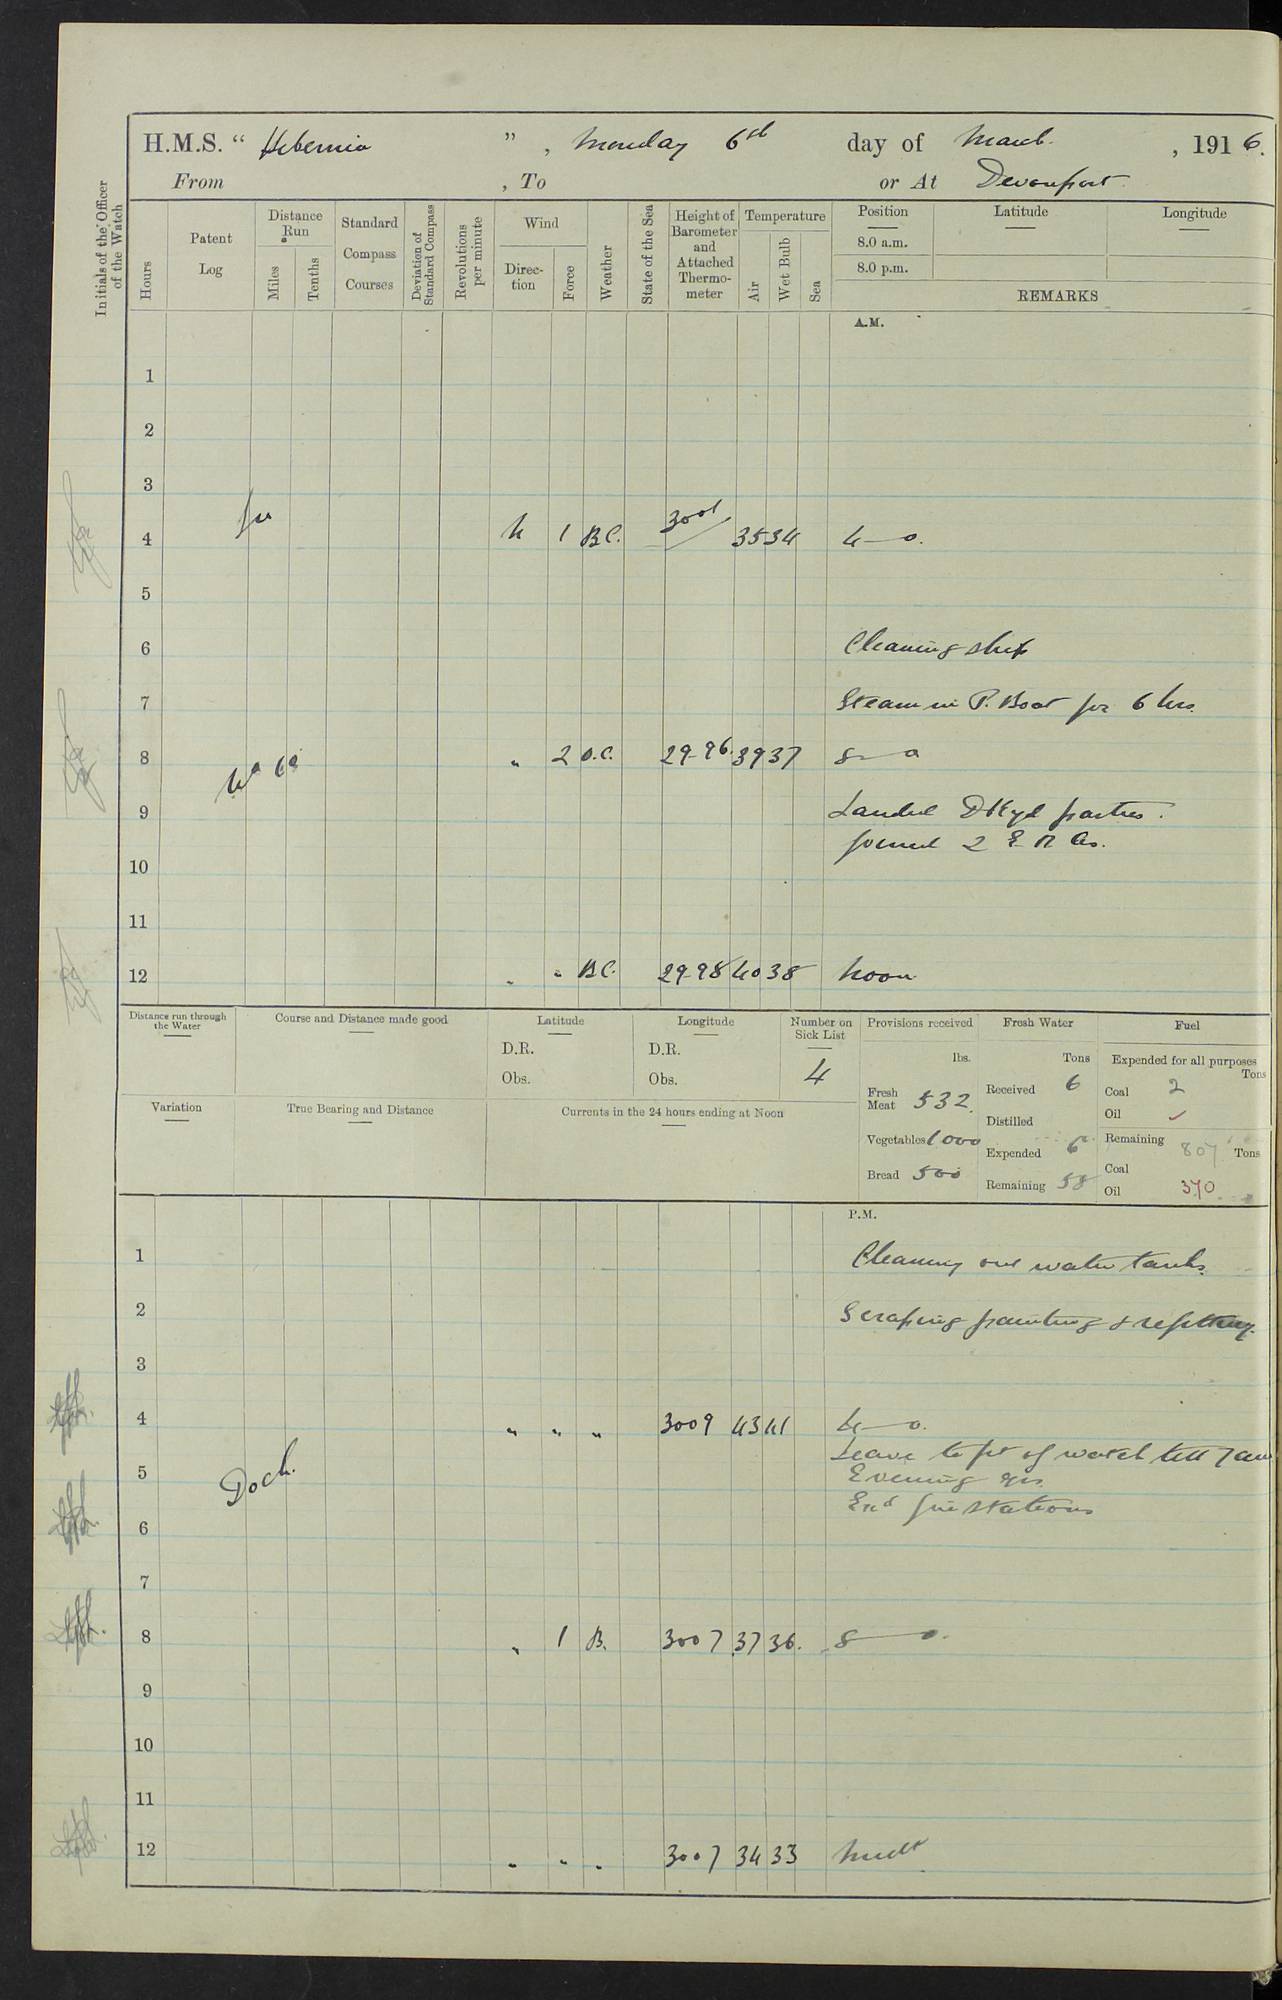 H.M.S. “ Hibernia ”, Monday 6th day of March. , 1916.
From , To or At Devonport.
Initials of the Officer of the Watch
Hours
Patent Log
Distance Run
Miles
Tenths
Standard Compass Courses
Deviation of Standard Compass
Revolutions per minute
Wind
Direction
Force
Weather
State of the Sea
Height of Barometer and Attached Thermometer
Temperature
Air
Wet Bulb
Sea
Position Latitude Longitude
8.0 a.m.
8.0 p.m.
REMARKS
A.M.
1
2
3
In
4 N 1 B.C. 3001 35 34 4—0.
5
6 Cleaning ship
7 Steam in P. Boat for 6 hrs.
8 " 2 O.C. 29.96 39 37 8—0
9 Landed DKyd parties.
Joined 2 E R As.
10
11
12 " " B.C. 29.98 40 38 Noon
Distance run through the Water
Course and Distance made good
Latitude
D.R.
Obs.
Longitude
D.R.
Obs.
Number on Sick List
4
Provisions received
lbs.
Fresh Meat 532
Vegetables 1000
Bread 500
Fresh Water
Tons
Received 6
Distilled
Expended 6
Remaining 58
Fuel
Expended for all purposes
Tons
Coal 2
Oil ✓
Remaining Tons
Coal 807
Oil 370
Variation
True Bearing and Distance
Currents in the 24 hours ending at Noon
P.M.
1 Cleaning out water tanks.
2 Scraping painting & refitting.
3
4 " " " 3009 43 41 4—0.
Leave to pt of watch till 7 am
5 Evening qrs.
Dock.
Exd fire stations
6
7
8 " 1 B. 3007 37 36. 8—0.
9
10
11
12 " " " 3007 34 33 Midt